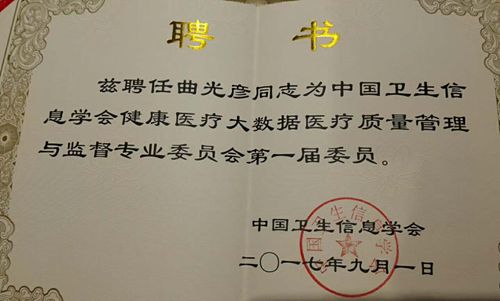 聘书
兹聘任曲光彦同志为中国卫生信
息学会健康医疗大数据医疗质量管理
与监督专业委员会第一届委员。
中国卫生信息学会
二〇一七年九月一日